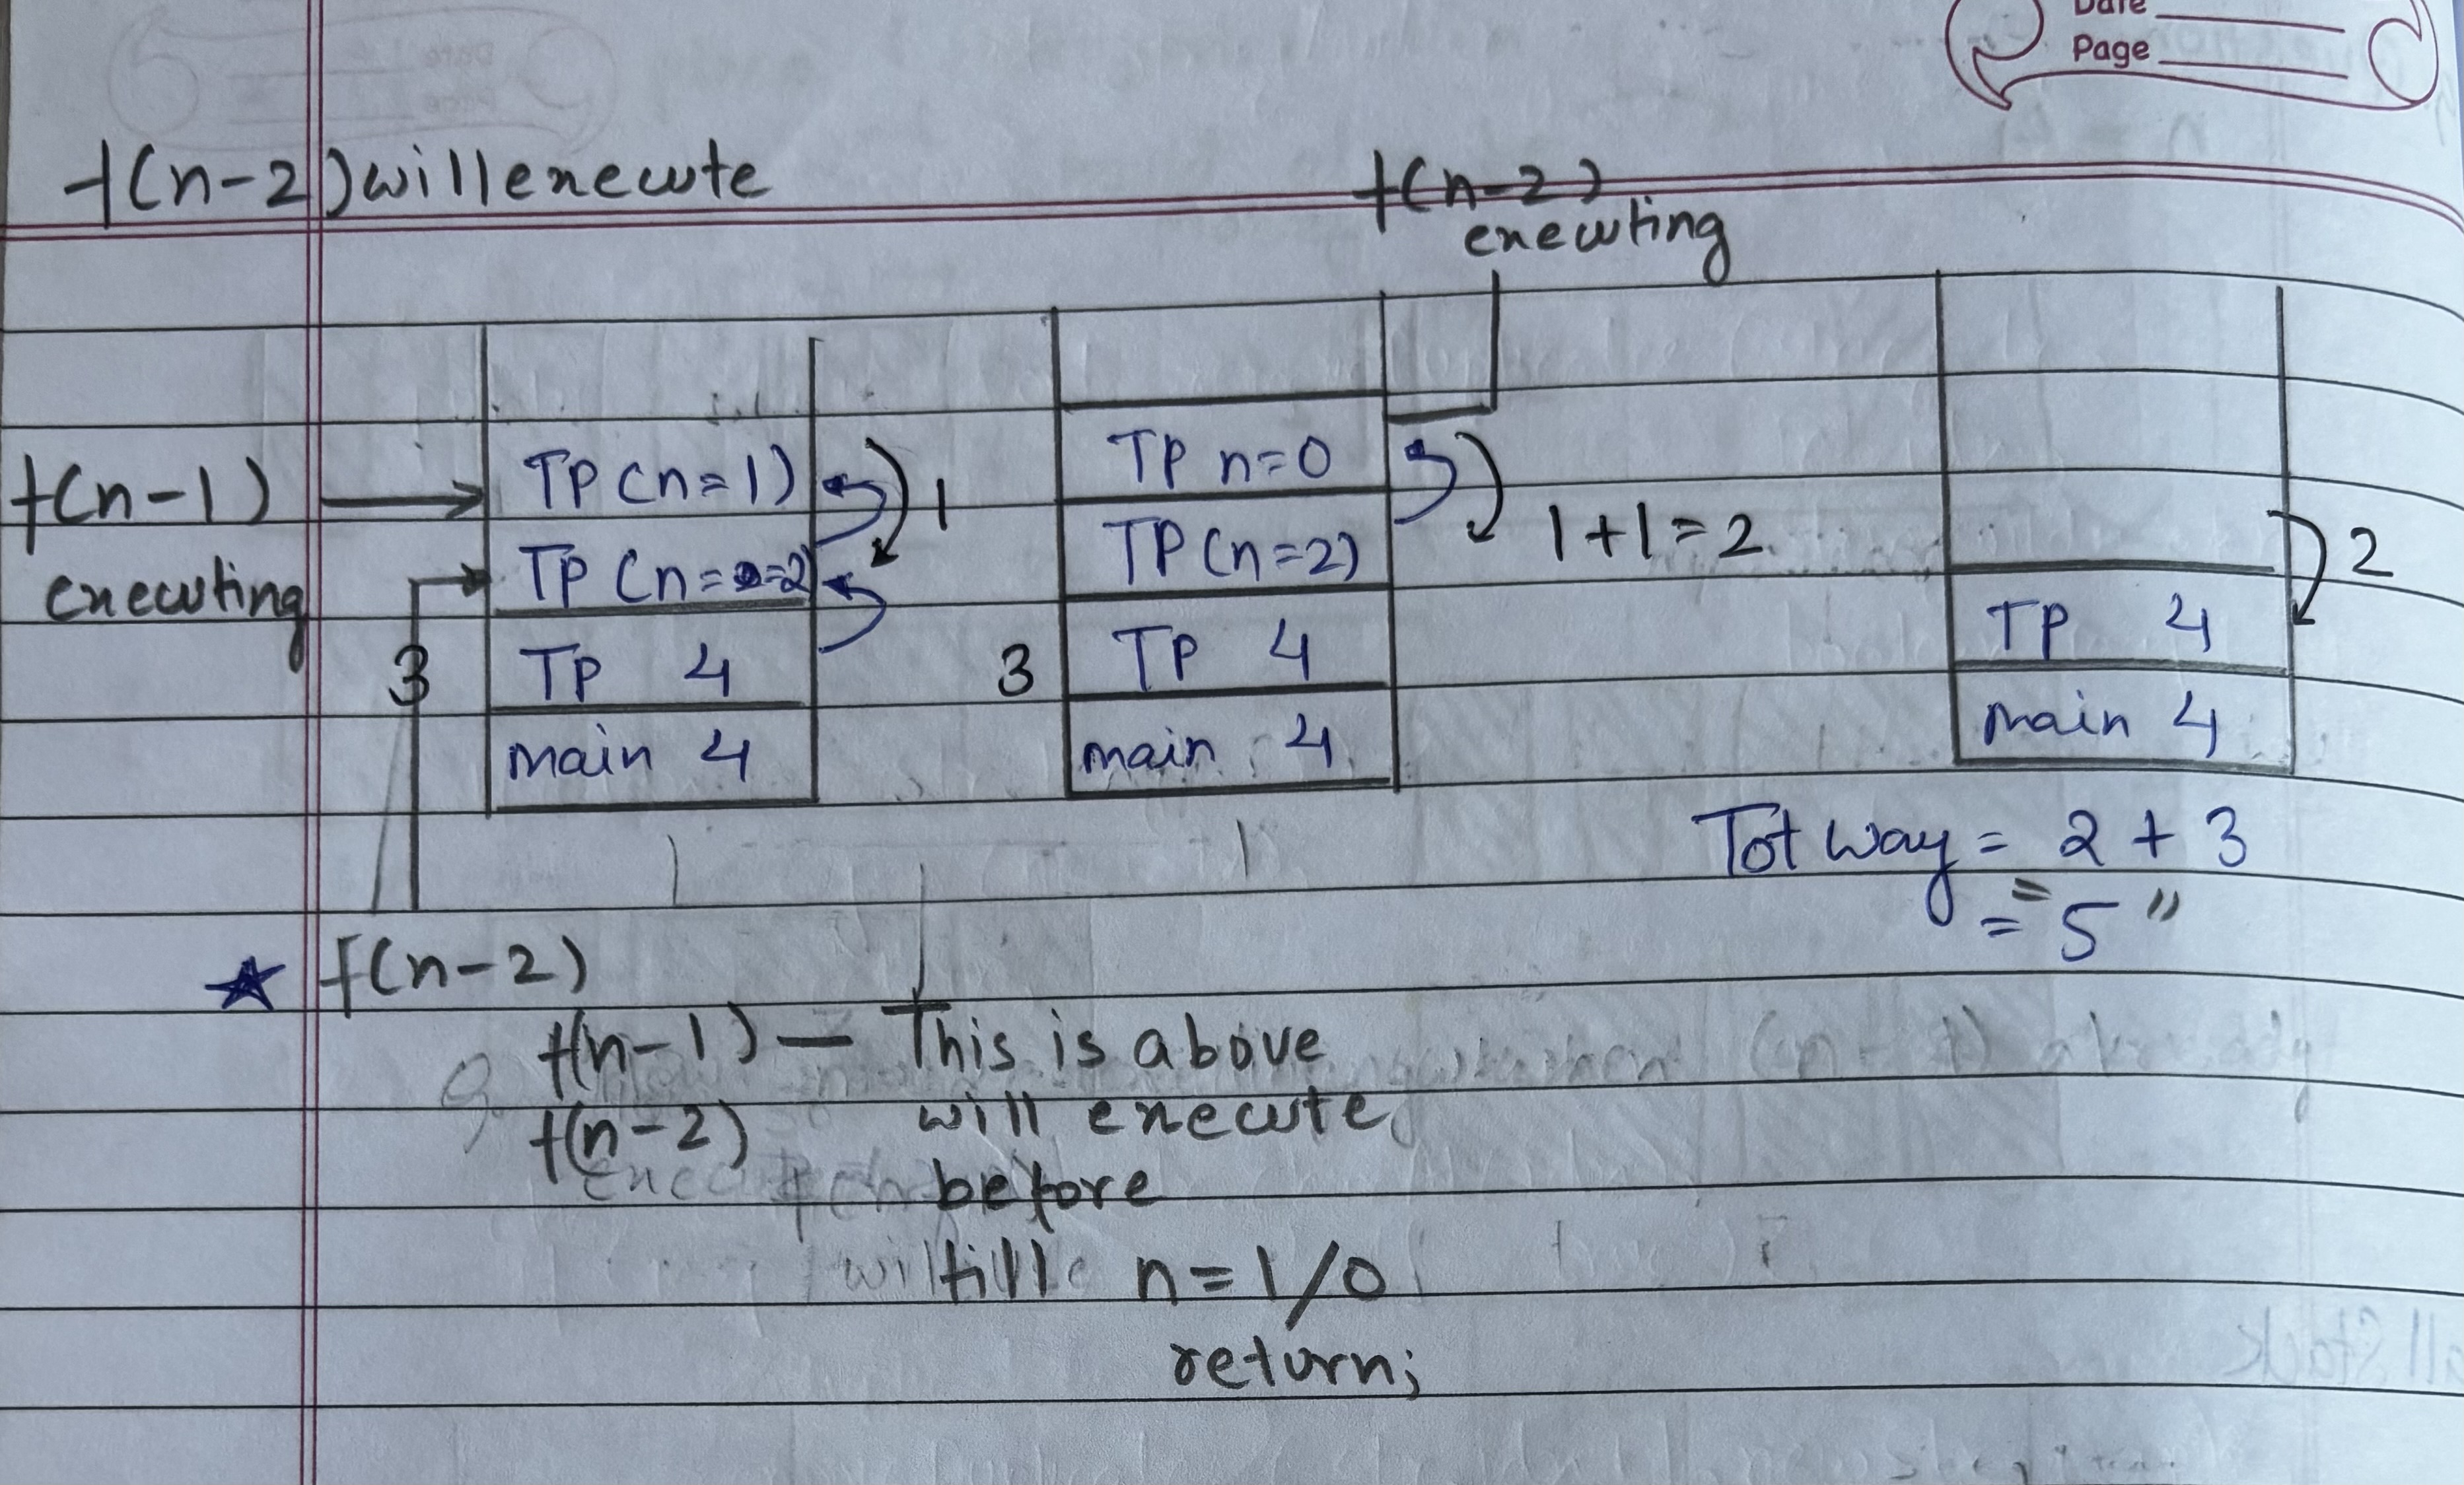 Date
Page
f(n-2) will execute
f(n-2)
executing
f(n-1)
executing
3
TP (n=1)
TP (n= =2)
TP 4
main 4
1
3
TP n=0
TP (n=2)
TP 4
main 4
1+1=2
TP 4
main 4
2
Tot way = 2 + 3
= 5 "
★ f(n-2)
f(n-1) — This is above
f(n-2) will execute
before
till n=1/0
return;